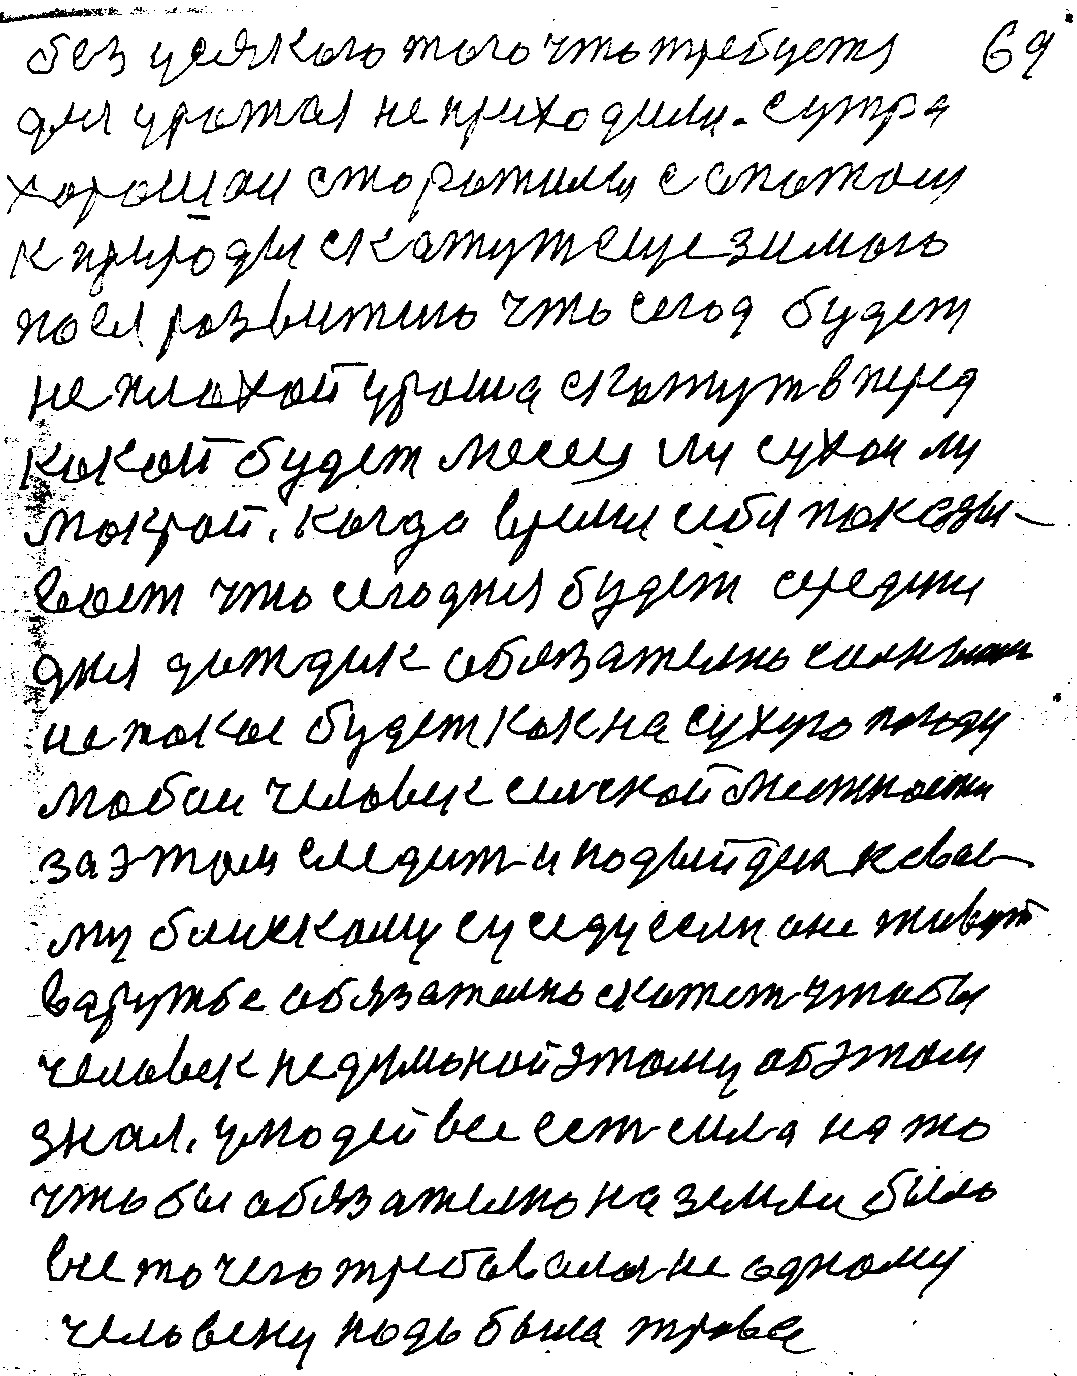 без усякого того что требуется 69
для урожая не приходили. с утра
хорошаи сторожилы с опытом
к природы скажут еще зимою
посл развитию что сегод будет
не плохой урожа скажут вперед
какой будет месец ли сухои ли
мокрой. когда время себя показы-
вает что сегодня будет середине
дня дождик обязателно солнышко
не такое будет как на сухую погоду
любои человек селской местности
за этом следит и подыйдя к свое-
му блискому суседу если оне живут
в дружбе обязателно скажет чтобы
человек неделной этому об этом
знал. у людей все ест сила на то
что бы обязателно на земли было
все то чего требовалос не одному
человеку подь была трова